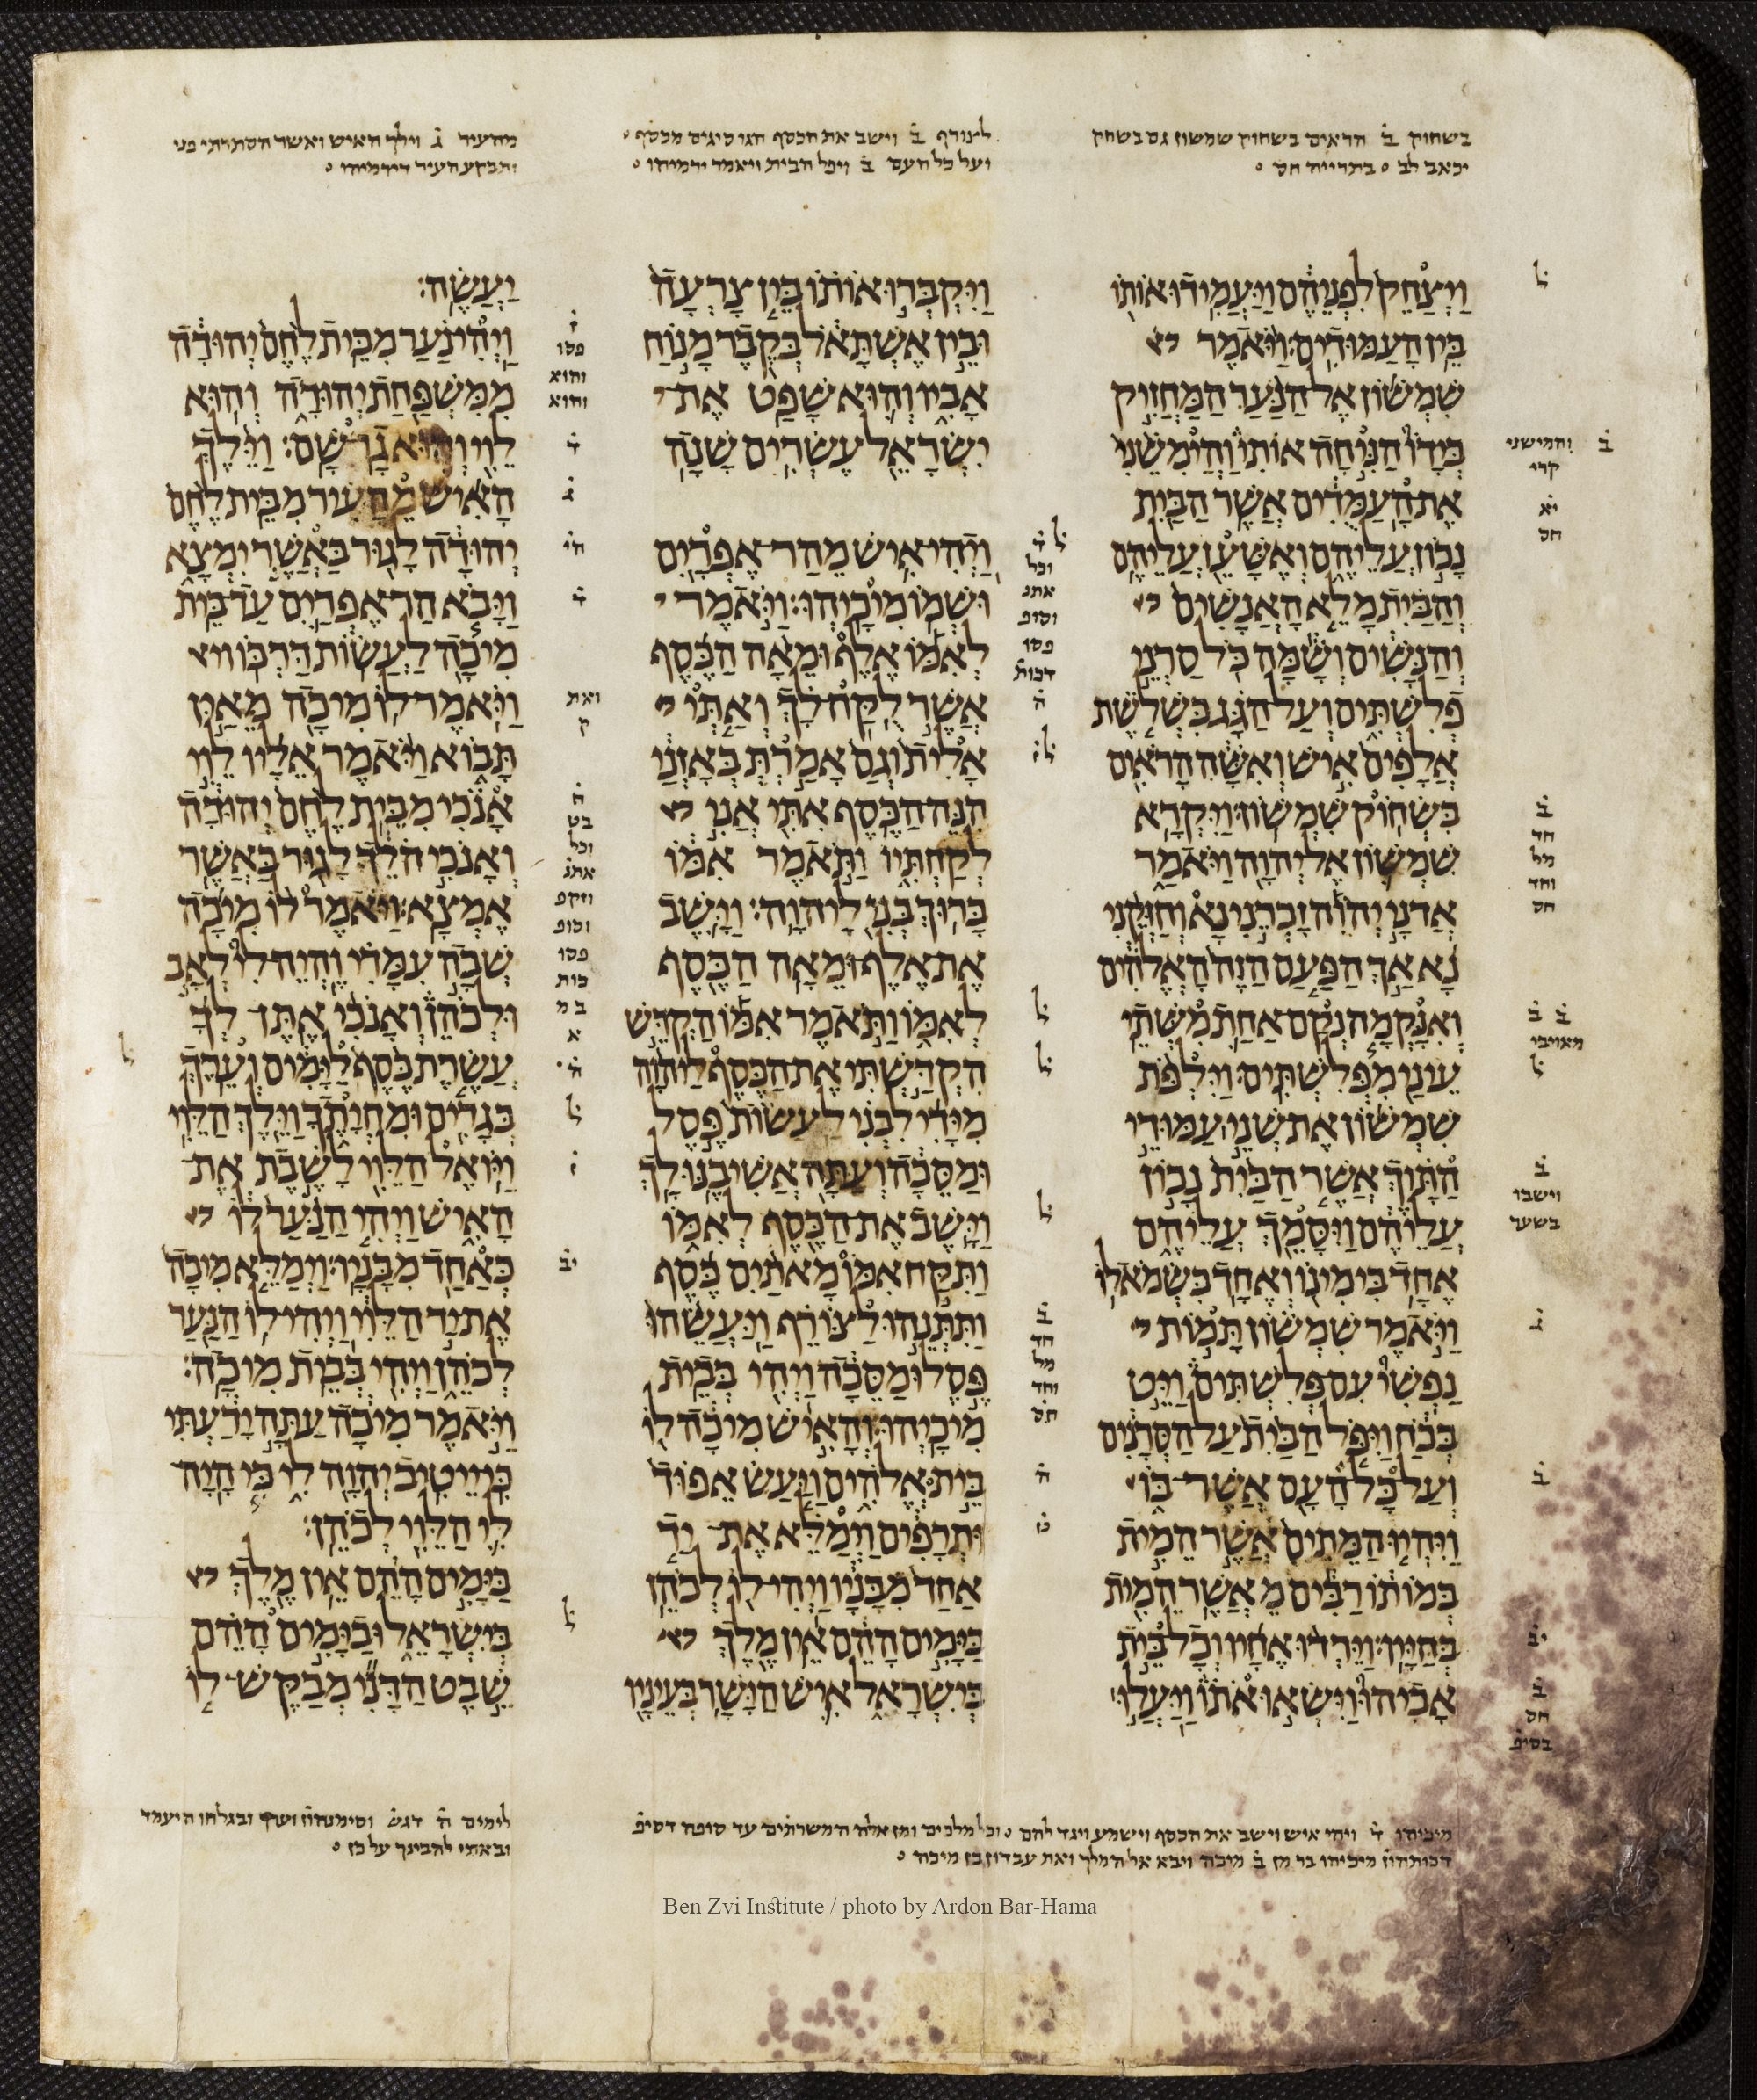 בשחוק ב̇ הראים בשחוק שמשון גם בשחק
יכאב לב ׃ בתרייה חס
לצורף ב̇ וישב את הכסף הגו סיגים מכסף
ועל כל העם ב̇ ויפל הבית ויאמר ירמיהו
מהעיר ג̇ וילך האיש ואשר הסתרתי פני
ותבקע העיר דירמיהו
וַיְצַחֵק לִפְנֵיהֶם וַיַּעֲמִידוּ אוֹתוֹ
בֵּין הָעַמּוּדִים׃ וַיֹּאמֶר
שִׁמְשׁוֹן אֶל הַנַּעַר הַמַּחֲזִיק
בְּיָדוֹ הַנִּיחָה אוֹתִי וַהֲימִשֵׁנִי
אֶת הָעַמֻּדִים אֲשֶׁר הַבַּיִת
נָכוֹן עֲלֵיהֶם וְאֶשָּׁעֵן עֲלֵיהֶם
וְהַבַּיִת מָלֵא הָאֲנָשִׁים
וְהַנָּשִׁים וְשָׁמָּה כֹּל סַרְנֵי
פְלִשְׁתִּים וְעַל הַגָּג כִּשְׁלֹשֶׁת
אֲלָפִים אִישׁ וְאִשָּׁה הָרֹאִים
בִּשְׂחוֹק שִׁמְשׁוֹן׃ וַיִּקְרָא
שִׁמְשׁוֹן אֶל יְהוָה וַיֹּאמַר
אֲדֹנָי יְהוִה זָכְרֵנִי נָא וְחַזְּקֵנִי
נָא אַךְ הַפַּעַם הַזֶּה הָאֱלֹהִים
וְאִנָּקְמָה נְקַם אַחַת מִשְּׁתֵי
עֵינַי מִפְּלִשְׁתִּים׃ וַיִּלְפֹּת
שִׁמְשׁוֹן אֶת שְׁנֵי עַמּוּדֵי
הַתָּוֶךְ אֲשֶׁר הַבַּיִת נָכוֹן
עֲלֵיהֶם וַיִּסָּמֵךְ עֲלֵיהֶם
אֶחָד בִּימִינוֹ וְאֶחָד בִּשְׂמֹאלוֹ׃
וַיֹּאמֶר שִׁמְשׁוֹן תָּמוֹת
נַפְשִׁי עִם פְּלִשְׁתִּים וַיֵּט
בְּכֹחַ וַיִּפֹּל הַבַּיִת עַל הַסְּרָנִים
וְעַל כָּל הָעָם אֲשֶׁר־בּוֹ
וַיִּהְיוּ הַמֵּתִים אֲשֶׁר הֵמִית
בְּמוֹתוֹ רַבִּים מֵאֲשֶׁר הֵמִית
בְּחַיָּיו׃ וַיֵּרְדוּ אֶחָיו וְכָל בֵּית
אָבִיהוּ וַיִּשְׂאוּ אֹתוֹ וַיַּעֲלוּ
וַיִּקְבְּרוּ אוֹתוֹ בֵּין צָרְעָה
וּבֵין אֶשְׁתָּאֹל בְּקֶבֶר מָנוֹחַ
אָבִיו וְהוּא שָׁפַט אֶת־
יִשְׂרָאֵל עֶשְׂרִים שָׁנָה׃
וַיְהִי אִישׁ מֵהַר־אֶפְרָיִם
וּשְׁמוֹ מִיכָיְהוּ׃ וַיֹּאמֶר
לְאִמּוֹ אֶלֶף וּמֵאָה הַכֶּסֶף
אֲשֶׁר לֻקַּח לָךְ וְאַתְּי
אָלִית וְגַם אָמַרְתְּ בְּאָזְנַי
הִנֵּה הַכֶּסֶף אִתִּי אֲנִי
לְקַחְתִּיו וַתֹּאמֶר אִמּוֹ
בָּרוּךְ בְּנִי לַיהוָה׃ וַיָּשֶׁב
אֶת אֶלֶף וּמֵאָה הַכֶּסֶף
לְאִמּוֹ וַתֹּאמֶר אִמּוֹ הַקְדֵּשׁ
הִקְדַּשְׁתִּי אֶת הַכֶּסֶף לַיהוָה
מִיָּדִי לִבְנִי לַעֲשׂוֹת פֶּסֶל
וּמַסֵּכָה וְעַתָּה אֲשִׁיבֶנּוּ לָךְ׃
וַיָּשֶׁב אֶת הַכֶּסֶף לְאִמּוֹ
וַתִּקַּח אִמּוֹ מָאתַיִם כֶּסֶף
וַתִּתְּנֵהוּ לַצּוֹרֵף וַיַּעֲשֵׂהוּ
פֶּסֶל וּמַסֵּכָה וַיְהִי בְּבֵית
מִיכָיְהוּ׃ וְהָאִישׁ מִיכָה לוֹ
בֵּית אֱלֹהִים וַיַּעַשׂ אֵפוֹד
וּתְרָפִים וַיְמַלֵּא אֶת־ יַד
אַחַד מִבָּנָיו וַיְהִי לוֹ לְכֹהֵן׃
בַּיָּמִים הָהֵם אֵין מֶלֶךְ
בְּיִשְׂרָאֵל אִישׁ הַיָּשָׁר בְּעֵינָיו
יַעֲשֶׂה׃
וַיְהִי נַעַר מִבֵּית לֶחֶם יְהוּדָה
מִמִּשְׁפַּחַת יְהוּדָה וְהוּא
לֵוִי וְהוּא גָר שָׁם׃ וַיֵּלֶךְ
הָאִישׁ מֵהָעִיר מִבֵּית לֶחֶם
יְהוּדָה לָגוּר בַּאֲשֶׁר יִמְצָא
וַיָּבֹא הַר אֶפְרַיִם עַד בֵּית
מִיכָה לַעֲשׂוֹת דַּרְכּוֹ׃
וַיֹּאמֶר לוֹ מִיכָה מֵאַיִן
תָּבוֹא וַיֹּאמֶר אֵלָיו לֵוִי
אָנֹכִי מִבֵּית לֶחֶם יְהוּדָה
וְאָנֹכִי הֹלֵךְ לָגוּר בַּאֲשֶׁר
אֶמְצָא׃ וַיֹּאמֶר לוֹ מִיכָה
שְׁבָה עִמָּדִי וֶהְיֵה לִי לְאָב
וּלְכֹהֵן וְאָנֹכִי אֶתֶּן־ לְךָ
עֲשֶׂרֶת כֶּסֶף לַיָּמִים וְעֵרֶךְ
בְּגָדִים וּמִחְיָתֶךָ וַיֵּלֶךְ הַלֵּוִי׃
וַיּוֹאֶל הַלֵּוִי לָשֶׁבֶת אֶת־
הָאִישׁ וַיְהִי הַנַּעַר לוֹ
כְּאַחַד מִבָּנָיו׃ וַיְמַלֵּא מִיכָה
אֶת יַד הַלֵּוִי וַיְהִי לוֹ הַנַּעַר
לְכֹהֵן וַיְהִי בְּבֵית מִיכָה׃
וַיֹּאמֶר מִיכָה עַתָּה יָדַעְתִּי
כִּי יֵיטִיב יְהוָה לִי כִּי הָיָה
לִי הַלֵּוִי לְכֹהֵן׃
בַּיָּמִים הָהֵם אֵין מֶלֶךְ
בְּיִשְׂרָאֵל וּבַיָּמִים הָהֵם
שֵׁבֶט הַדָּנִי מְבַקֶּשׁ־ לוֹ
מיכיהו ד̇ ויהי איש וישב את הכסף וישמע ויגד להם ׃ וכל מלכים ומן אלה המשרתים עד סופה דסיפ
דכותהון מיכיהו בר מן ב̇ מיכה ויבא אל המלך ואת עבדון בן מיכה
לימים ה̇ דגש וסימנהון וערך ובגלחו היעמד
ובאתי להבינך על כן
Ben Zvi Institute / photo by Ardon Bar-Hama